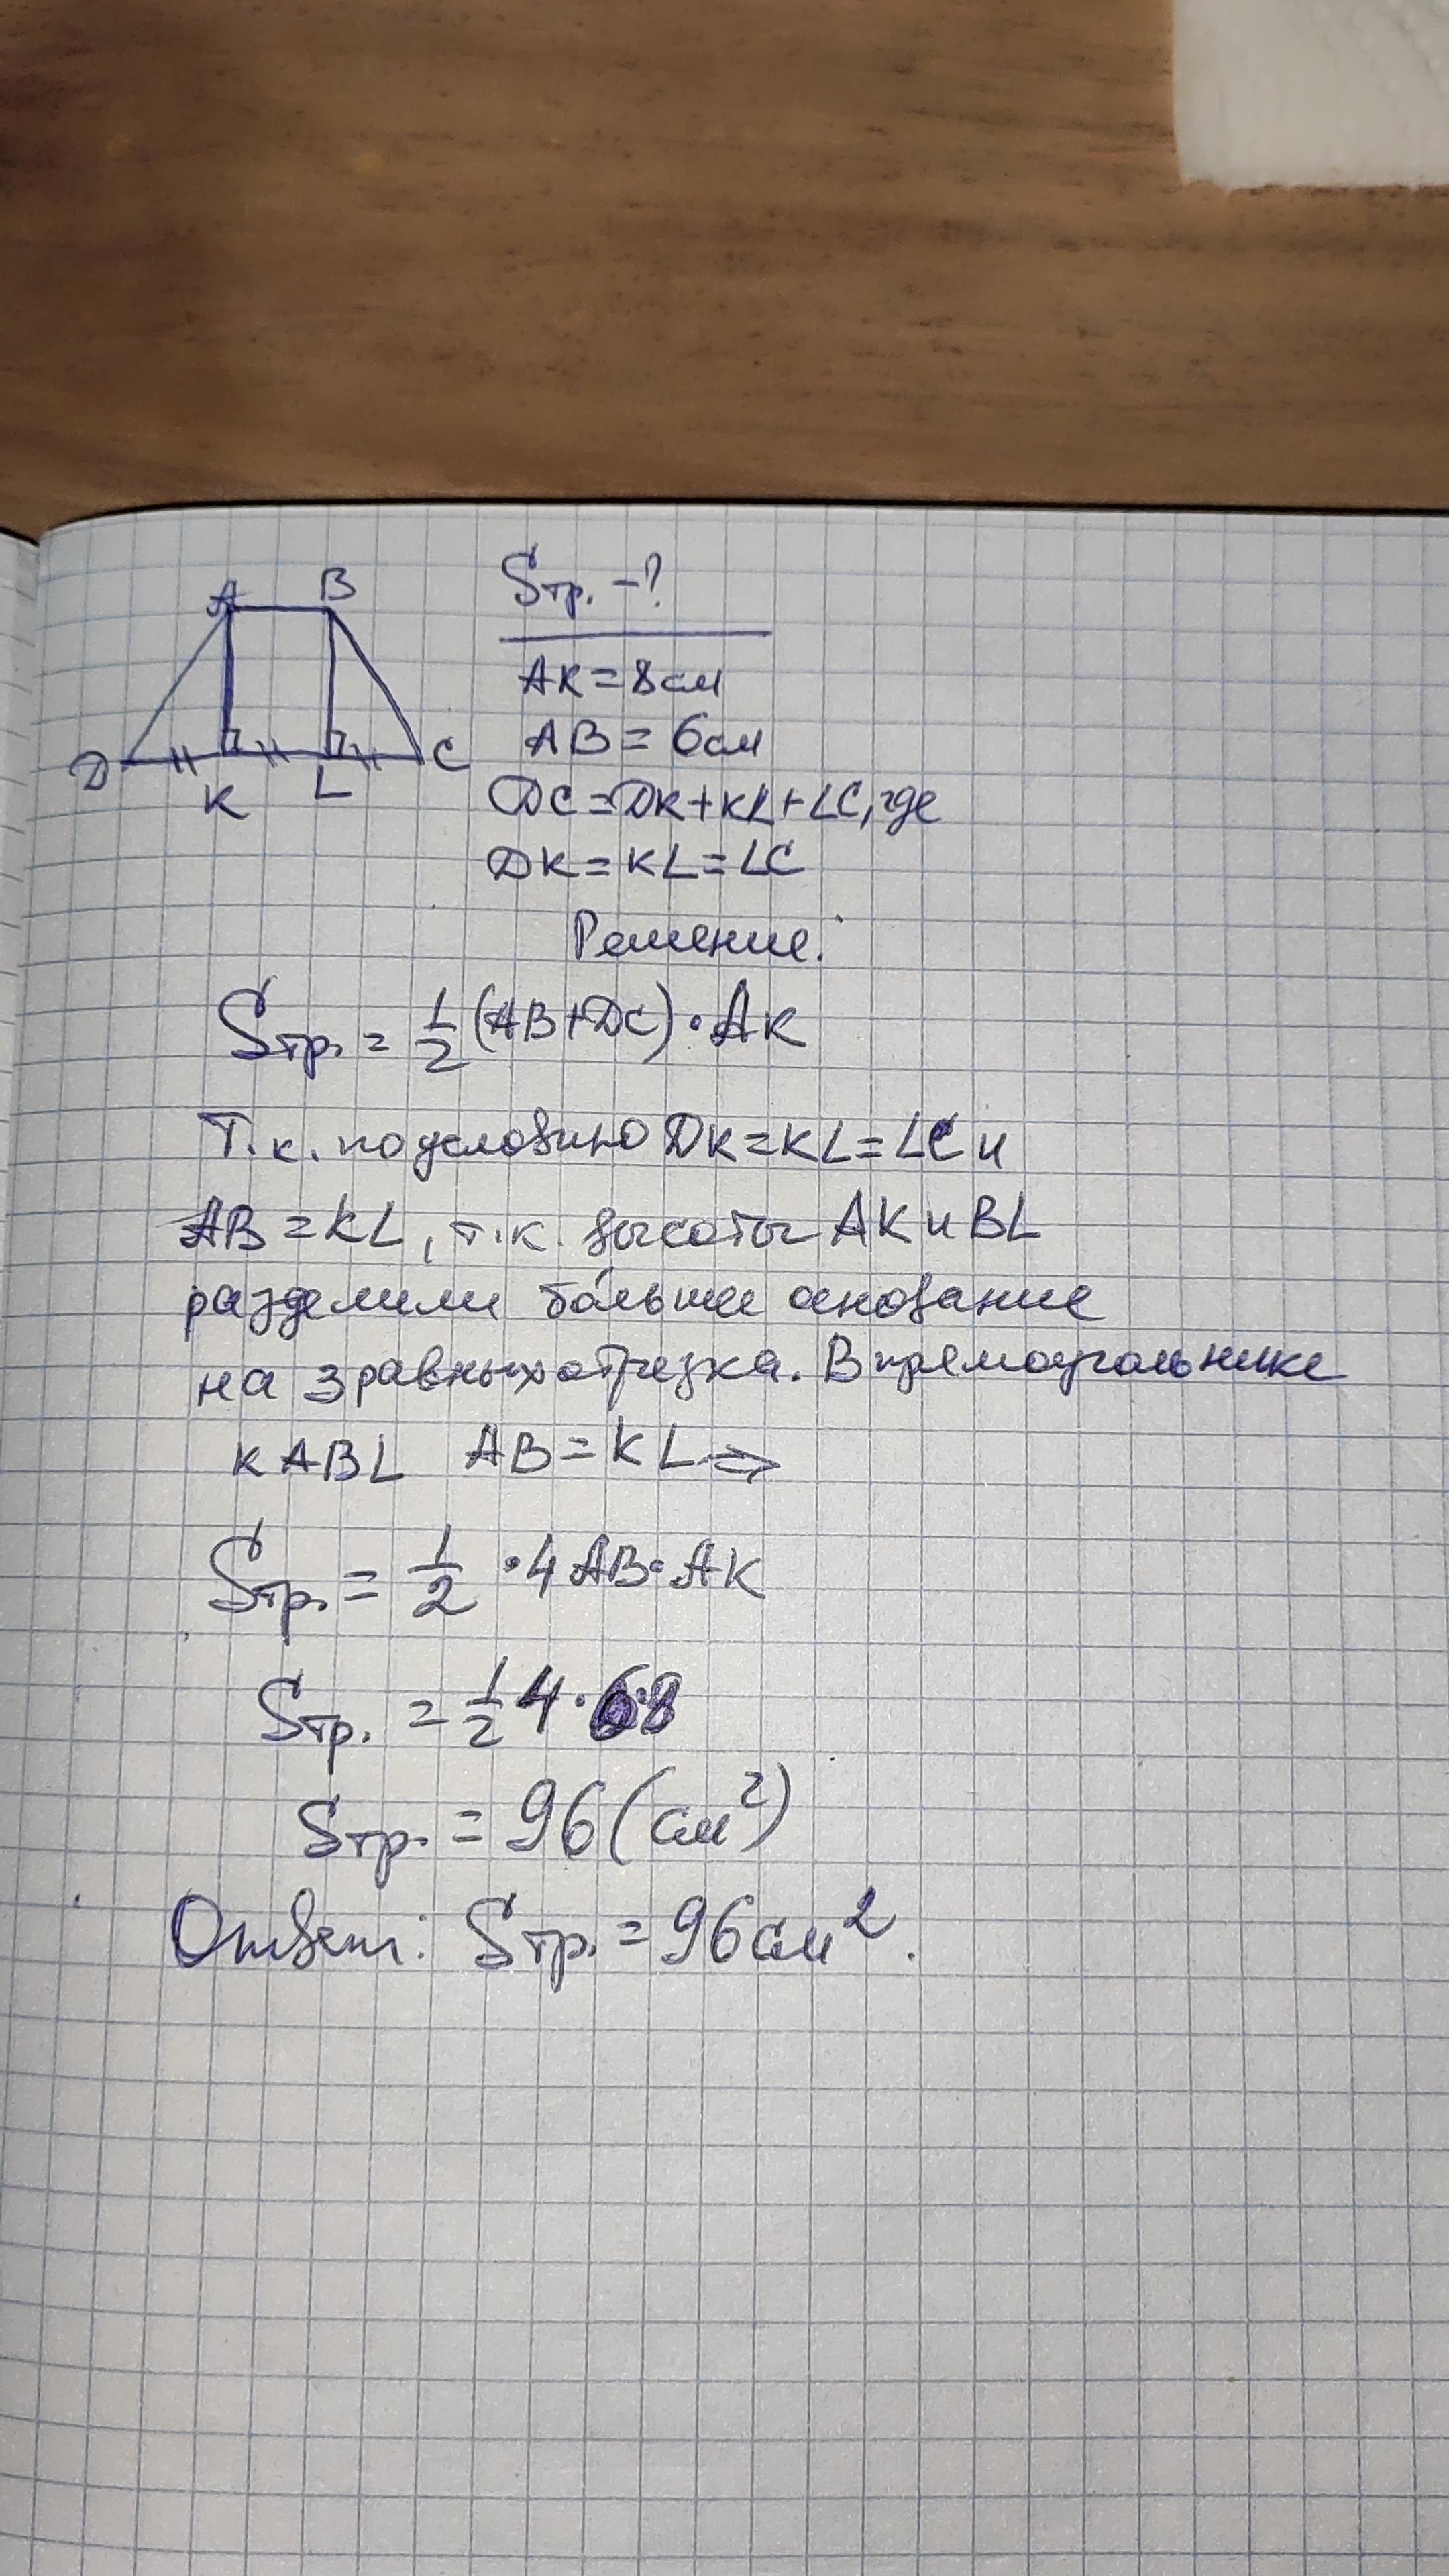 A B
D K L C
Sтр. -?
AK = 8см
AB = 6см
DC = DK + KL + LC, где
DK = KL = LC
Решение:
Sтр. = 1/2 (AB + DC) · AK
Т.к. по условию DK = KL = LC и
AB = KL, т.к. высоты AK и BL
разделили бо́льшее основание
на 3 равных отрезка. В прямоугольнике
KABL AB = KL ⇒
Sтр. = 1/2 · 4AB · AK
Sтр. = 1/2 4 · 6 · 8
Sтр. = 96 (см²)
Ответ: Sтр. = 96см².